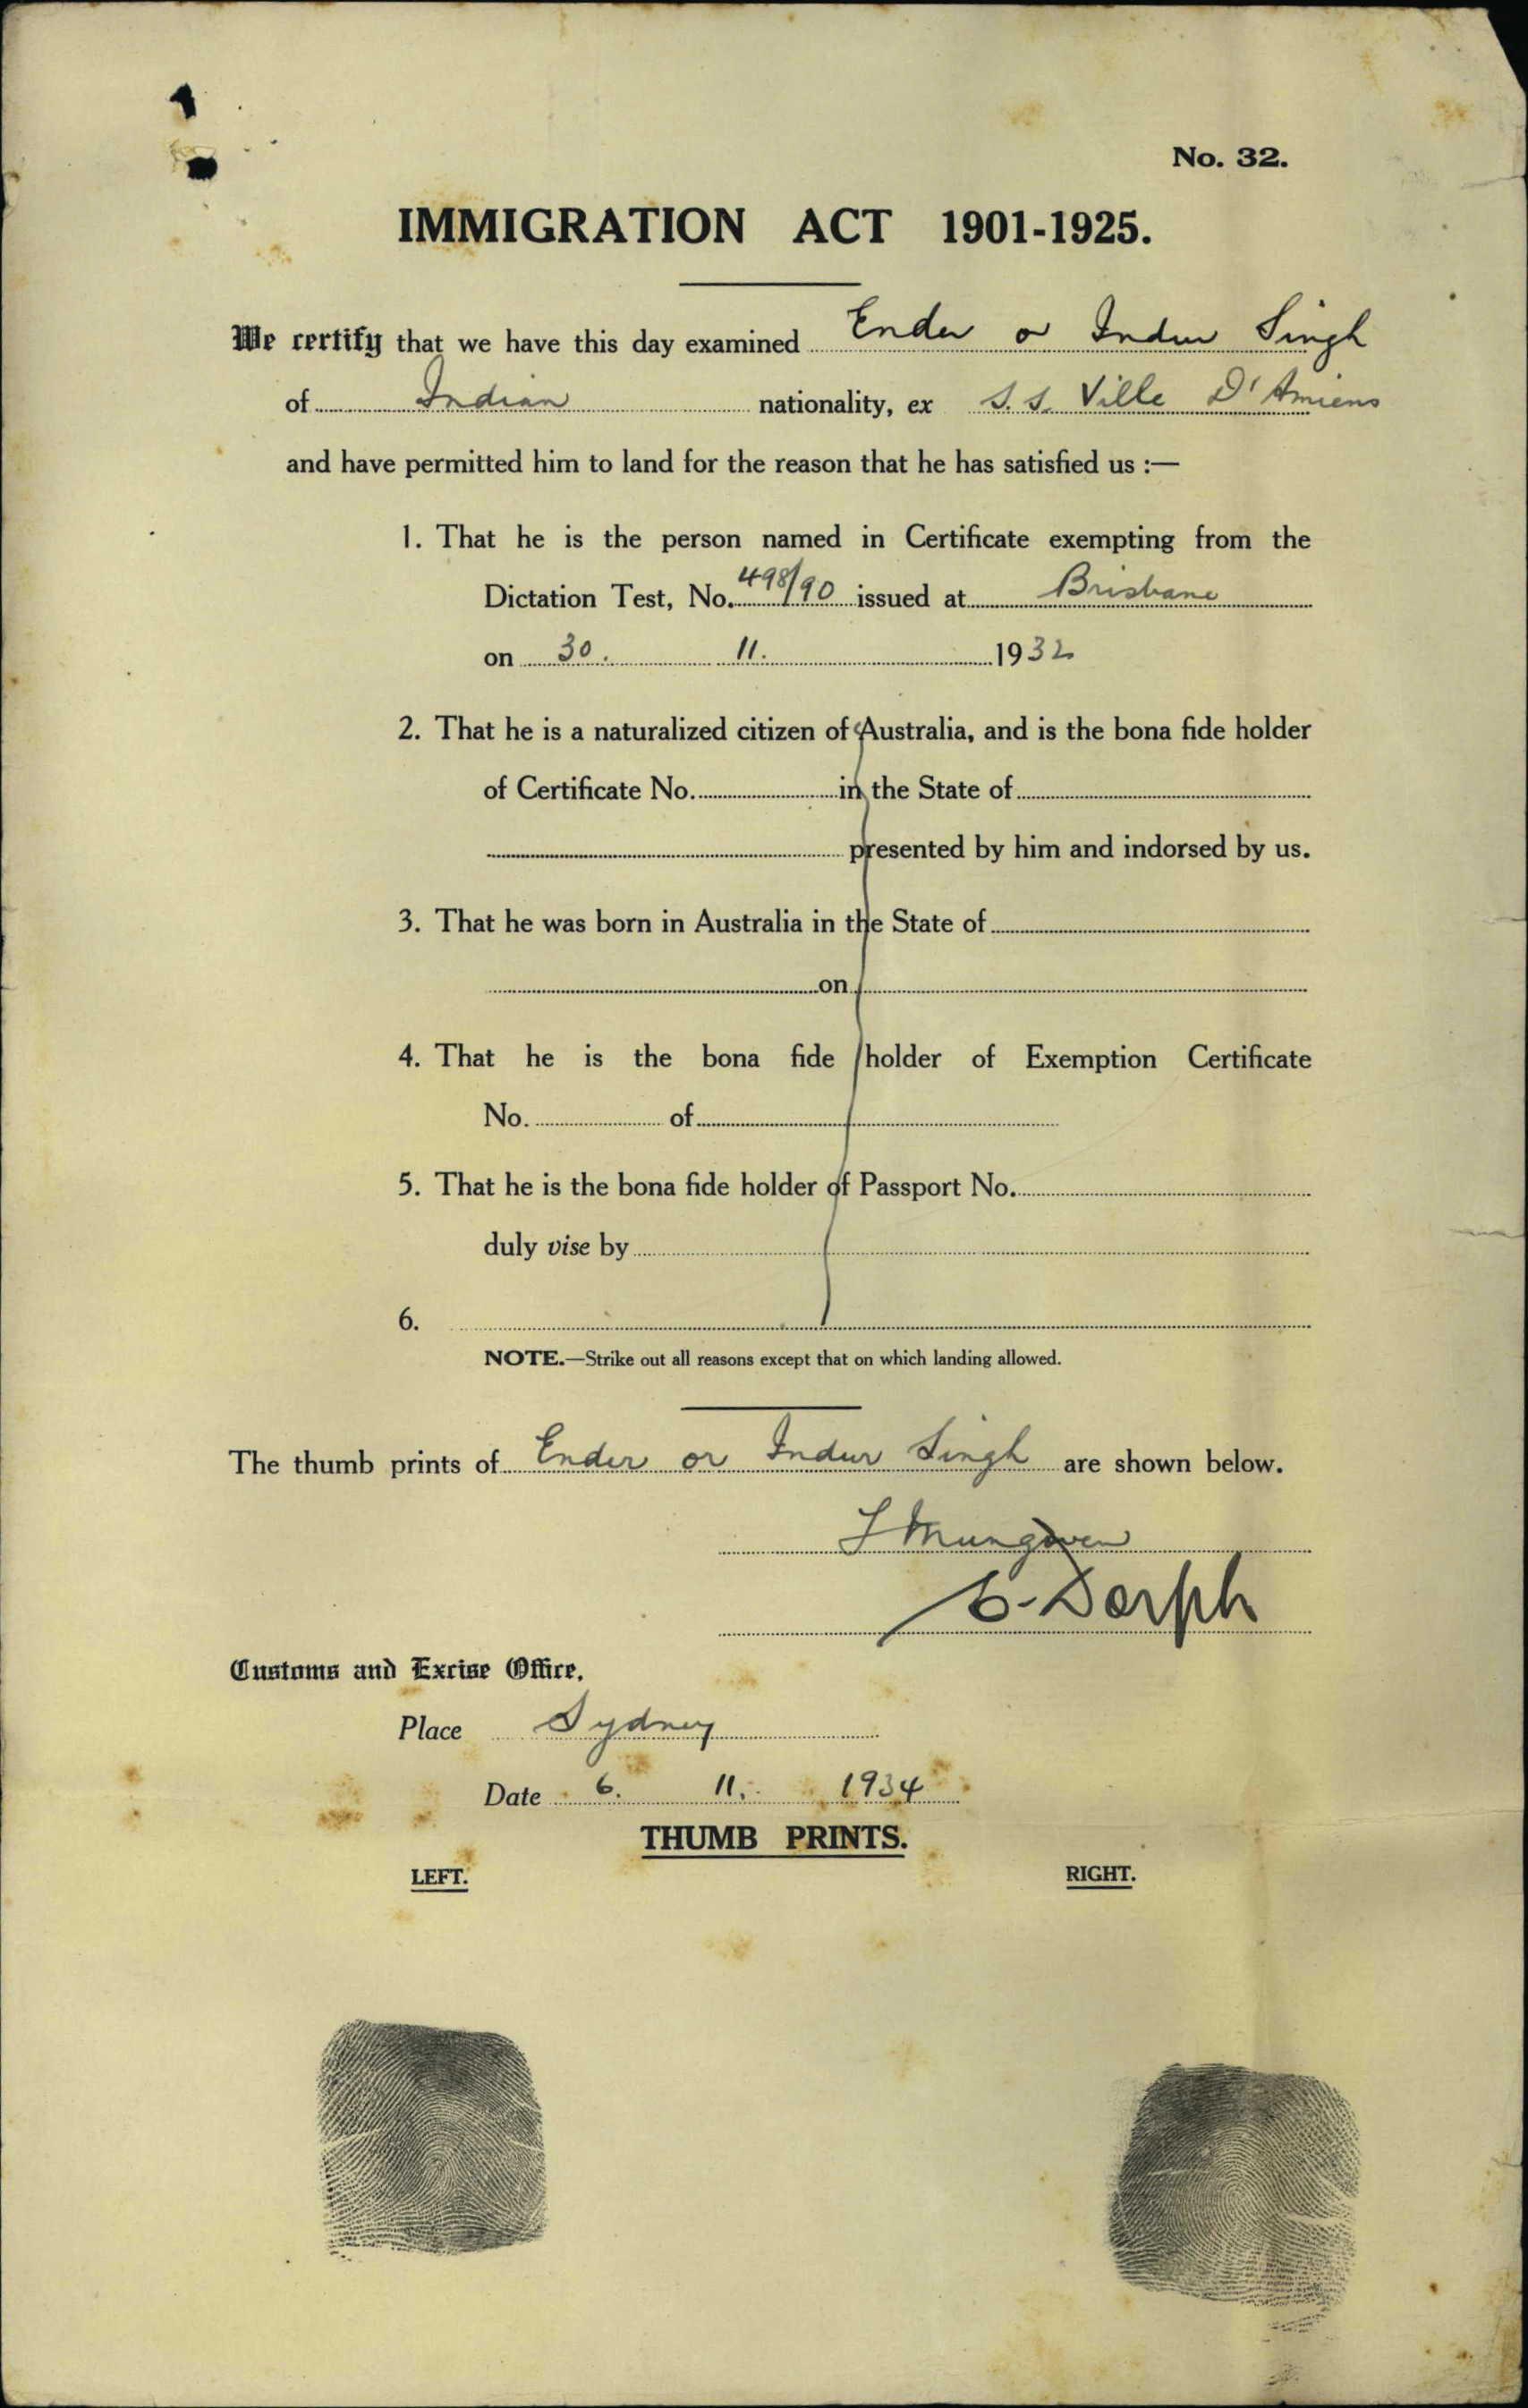 No. 32.
IMMIGRATION ACT 1901-1925.
We certify that we have this day examined Ender or Indur Singh
of Indian nationality, ex S.S. Ville D'Amiens
and have permitted him to land for the reason that he has satisfied us :—
1. That he is the person named in Certificate exempting from the
Dictation Test, No. 498/90 issued at Brisbane
on 30. 11. 1932
2. That he is a naturalized citizen of Australia, and is the bona fide holder
of Certificate No. in the State of
presented by him and indorsed by us.
3. That he was born in Australia in the State of
on
4. That he is the bona fide holder of Exemption Certificate
No. of
5. That he is the bona fide holder of Passport No.
duly vise by
6.
NOTE.—Strike out all reasons except that on which landing allowed.
The thumb prints of Ender or Indur Singh are shown below.
Customs and Excise Office.
Place Sydney
Date 6. 11. 1934
THUMB PRINTS.
LEFT. RIGHT.